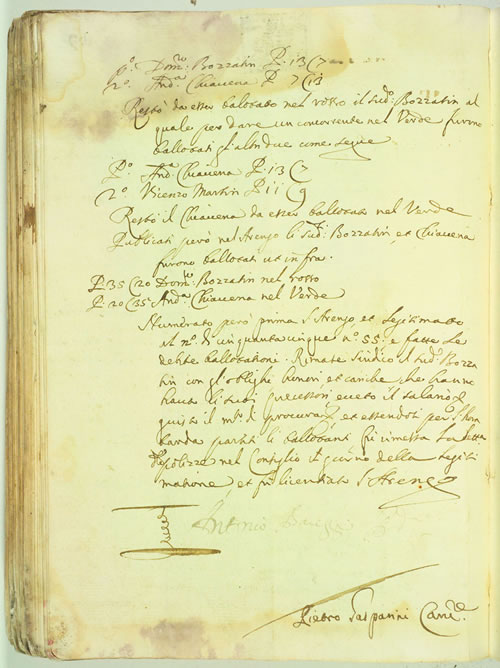 p.º Dom.co Bozzatin P. 13 C 7
2.º And.a Chiavena P. 7 C 13
Restò da esser balotado nel rosso il sud.o Bozzatin al
quale per dare un concorrente nel Verde furono
ballotati gl'altri due come segue
P.º And.a Chiavena P. 13 C 7
2.º Vicenzo Martin P. 11 C 9
Restò il Chiavena da esser ballotato nel Verde
Publicati però nel Arengo li sud.i Bozzatin, et Chiavena
furono ballotati ut infra.
P. 35 C 20 Dom.co Bozzatin nel rosso
P. 20 C 35 And.a Chiavena nel Verde
Numerato però prima l'Arengo et legitimatto
al n.o di cinquanta cinque n.o 55: e fatte le
dette ballotationi. Rimase Sindico il sud.o Bozza
tin con gl'oblighi honori et cariche che hanno
hauti li suoi precessori eceto il salario
giusto il et essendosi per l'hora
tarda partiti li ballotanti fù rimessa la
nel Consiglio il giorno della legiti
matione, et fù licentiato l'Arengo
Antonio
Pietro Gasparini Canc.e